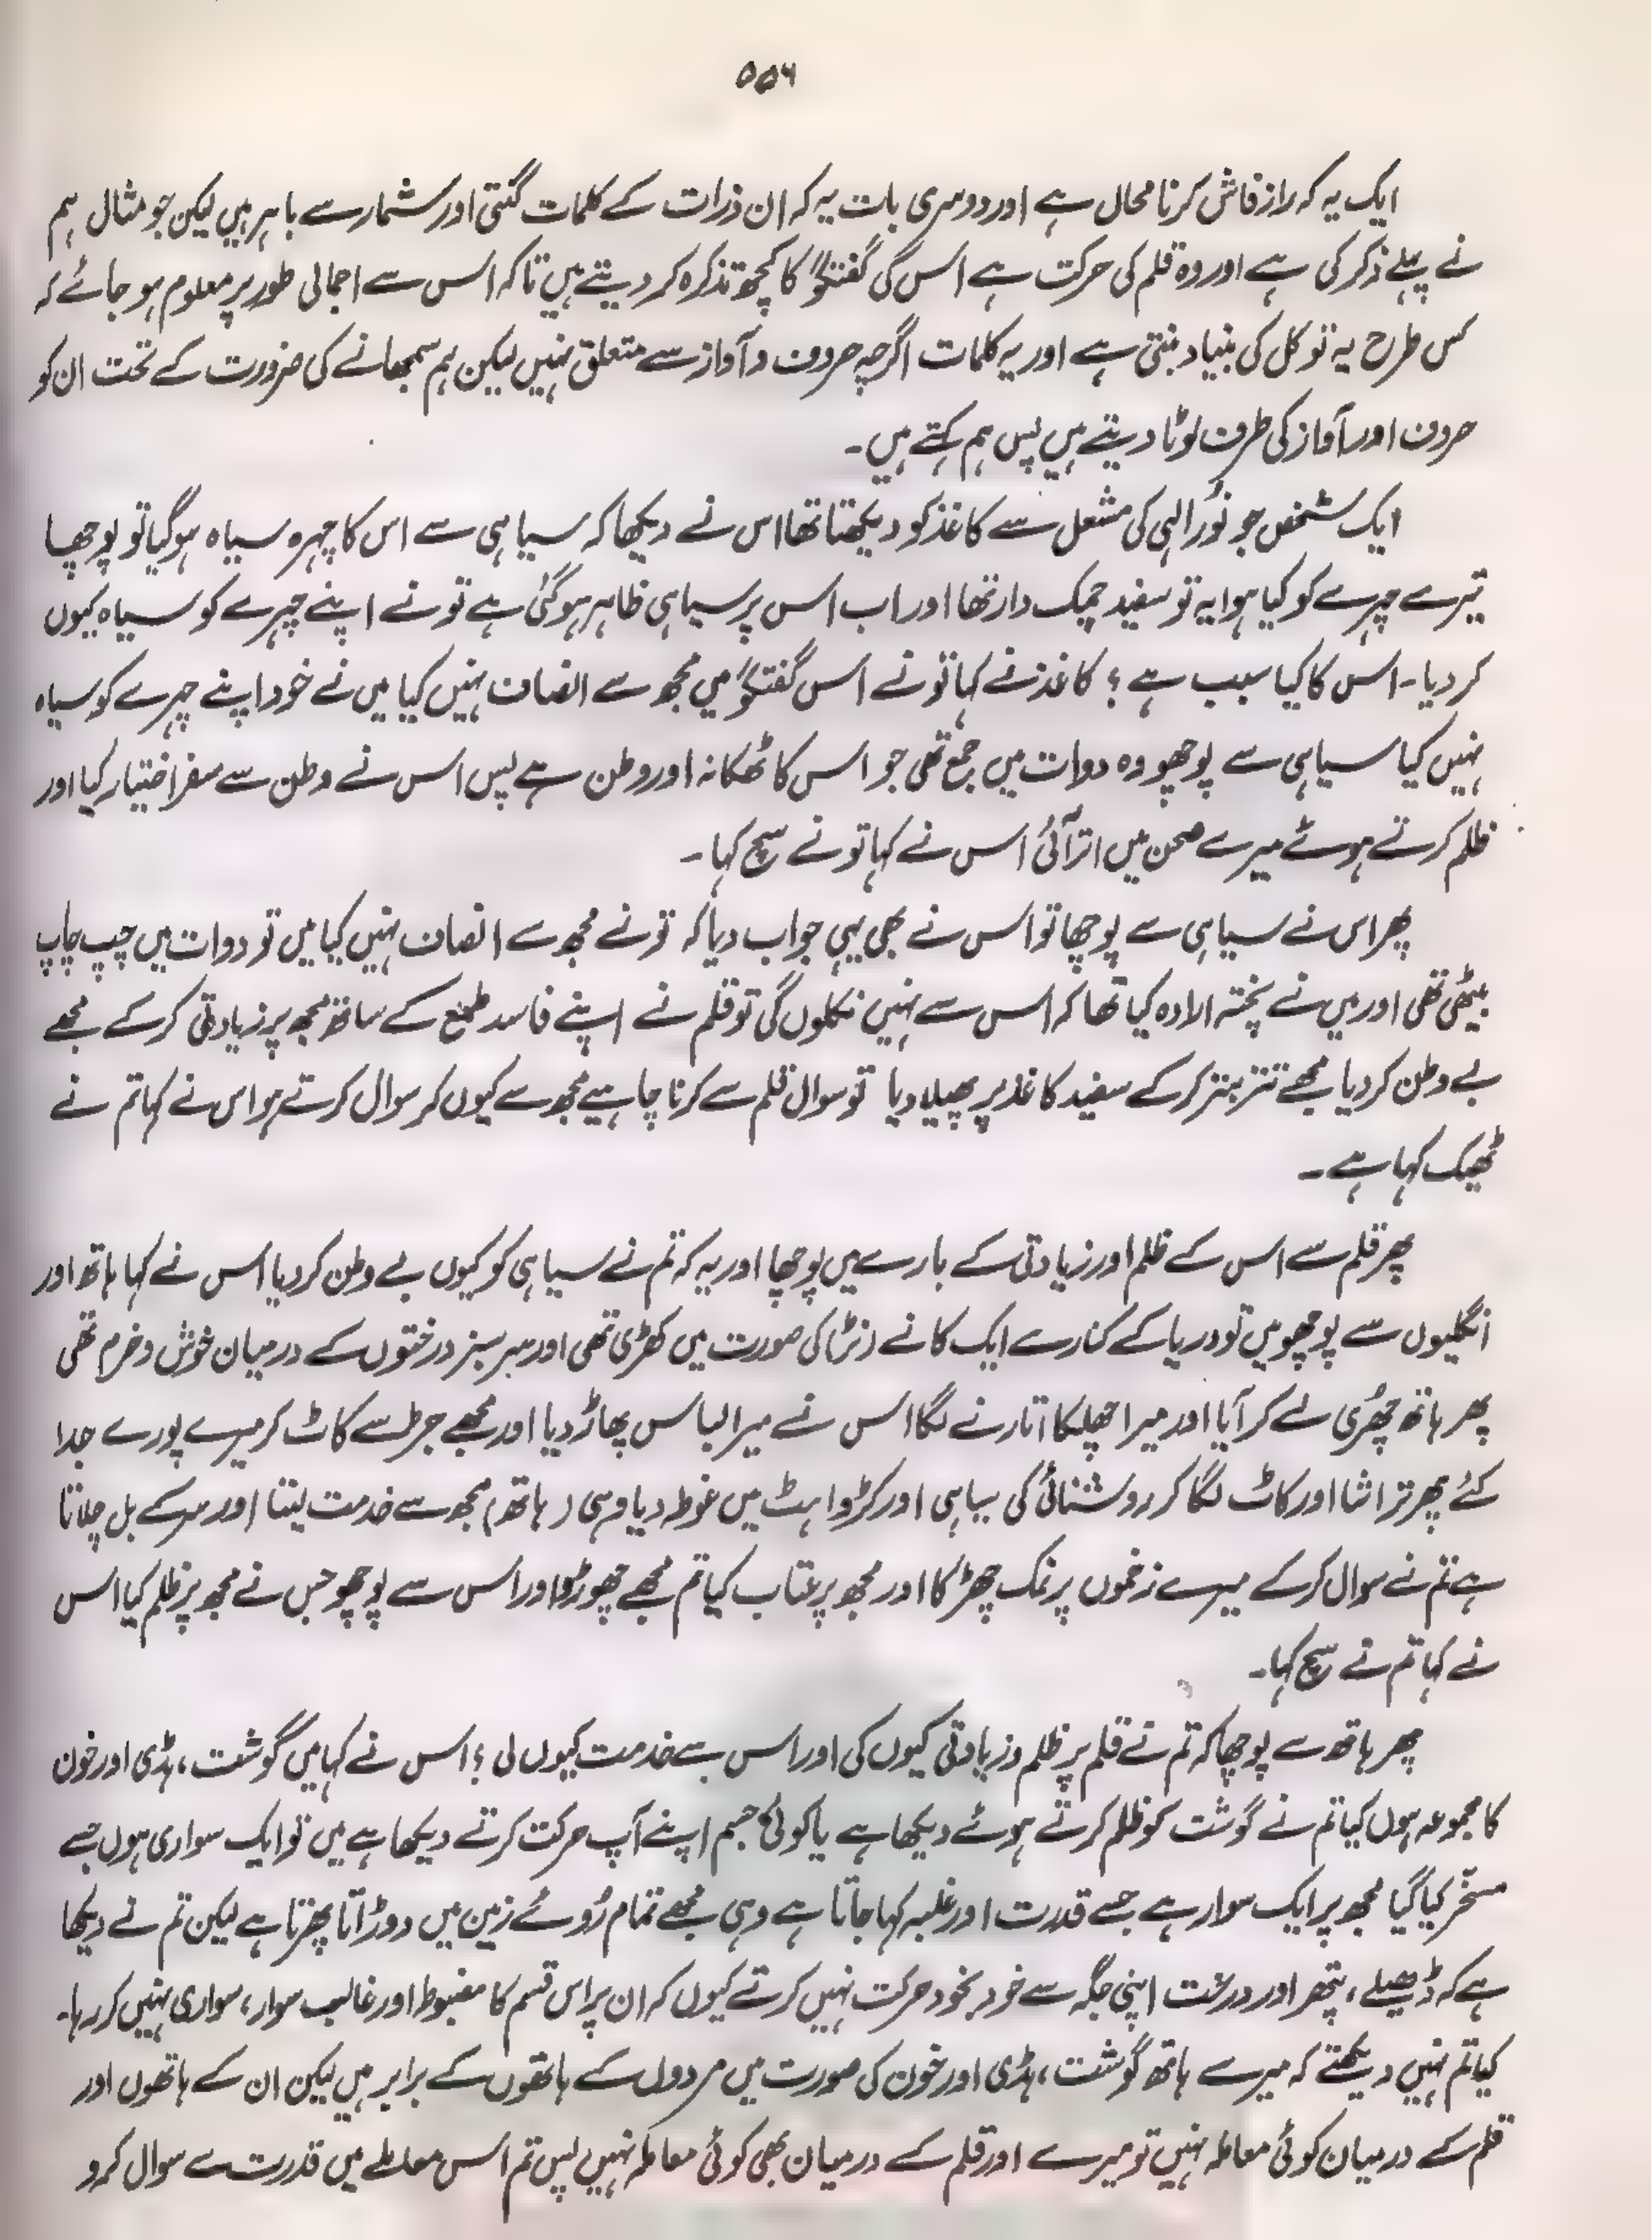 ۵۵۶
ایک یہ کہ راز فاش کرنا محال ہے اور دوسری بات یہ کہ ان ذرات کے کلمات گنتی اور شمار سے باہر ہیں لیکن جو مثال ہم
نے پہلے ذکر کی ہے اور وہ قلم کی حرکت ہے اس کی گفتگو کا کچھ تذکرہ کر دیتے ہیں تاکہ اس سے اجمالی طور پر معلوم ہو جائے کہ
کس طرح یہ توکل کی بنیاد بنتی ہے اور یہ کلمات اگرچہ حروف و آواز سے متعلق نہیں لیکن ہم سمجھانے کی ضرورت کے تحت ان کو
حروف اور آواز کی طرف لوٹا دیتے ہیں پس ہم کہتے ہیں۔
ایک شخص جو نُور الٰہی کی مشعل سے کاغذ کو دیکھتا تھا اس نے دیکھا کہ سیاہی سے اس کا چہرہ سیاہ ہو گیا تو پوچھا
تیرے چہرے کو کیا ہوا یہ تو سفید چمک دار تھا اور اب اس پر سیاہی ظاہر ہو گئی ہے تو نے اپنے چہرے کو سیاہ کیوں
کر دیا۔ اس کا کیا سبب ہے؟ کاغذ نے کہا تو نے اس گفتگو میں مجھ سے انصاف نہیں کیا میں نے خود اپنے چہرے کو سیاہ
نہیں کیا سیاہی سے پوچھو وہ دوات میں جمع تھی جو اس کا ٹھکانہ اور وطن ہے پس اس نے وطن سے سفر اختیار کیا اور
ظلم کرتے ہوئے میرے صحن میں اتر آئی اس نے کہا تو نے سچ کہا۔
پھر اس نے سیاہی سے پوچھا تو اس نے بھی یہی جواب دیا کہ تو نے مجھ سے انصاف نہیں کیا میں تو دوات میں چپ چاپ
بیٹھی تھی اور میں نے پختہ ارادہ کیا تھا کہ اس سے نہیں نکلوں گی تو قلم نے اپنے فاسد طمع کے ساتھ مجھ پر زیادتی کر کے مجھے
بے وطن کر دیا مجھے تتر بتر کر کے سفید کاغذ پر پھیلا دیا تو سوال قلم سے کرنا چاہیے مجھ سے کیوں کر سوال کرتے ہو اس نے کہا تم نے
ٹھیک کہا ہے۔
پھر قلم سے اس کے ظلم اور زیادتی کے بارے میں پوچھا اور یہ کہ تم نے سیاہی کو کیوں بے وطن کر دیا اس نے کہا ہاتھ اور
انگلیوں سے پوچھو میں تو دریا کے کنارے ایک کانے (نڑ) کی صورت میں کھڑی تھی اور سرسبز درختوں کے درمیان خوش و خرم تھی
پھر ہاتھ چھُری لے کر آیا اور میرا چھلکا اتارنے لگا اس نے میرا لباس پھاڑ دیا اور مجھے جڑ سے کاٹ کر میرے پورے جدا
کئے پھر تراشا اور کاٹ لگا کر روشنائی کی سیاہی اور کڑواہٹ میں غوطہ دیا وہی (ہاتھ) مجھ سے خدمت لیتا اور سر کے بل چلاتا
ہے تم نے سوال کر کے میرے زخموں پر نمک چھڑکا اور مجھ پر عتاب کیا تم مجھے چھوڑو اور اس سے پوچھو جس نے مجھ پر ظلم کیا اس
نے کہا تم نے سچ کہا۔
پھر ہاتھ سے پوچھا کہ تم نے قلم پر ظلم و زیادتی کیوں کی اور اس سے خدمت کیوں لی؟ اس نے کہا میں گوشت، ہڈی اور خون
کا مجموعہ ہوں کیا تم نے گوشت کو ظلم کرتے ہوئے دیکھا ہے یا کوئی جسم اپنے آپ حرکت کرتے دیکھا ہے میں تو ایک سواری ہوں جسے
مسخّر کیا گیا مجھ پر ایک سوار ہے جسے قدرت اور غلبہ کہا جاتا ہے وہی مجھے تمام رُوئے زمین میں دوڑاتا پھرتا ہے لیکن تم نے دیکھا
ہے کہ ڈھیلے، پتھر اور درخت اپنی جگہ سے خود بخود حرکت نہیں کرتے کیوں کہ ان پر اس قسم کا مضبوط اور غالب سوار، سواری نہیں کر رہا۔
کیا تم نہیں دیکھتے کہ میرے ہاتھ گوشت، ہڈی اور خون کی صورت میں مردوں کے ہاتھوں کے برابر ہیں لیکن ان کے ہاتھوں اور
قلم کے درمیان کوئی معاملہ نہیں تو میرے اور قلم کے درمیان بھی کوئی معاملہ نہیں پس تم اس معاملے میں قدرت سے سوال کرو